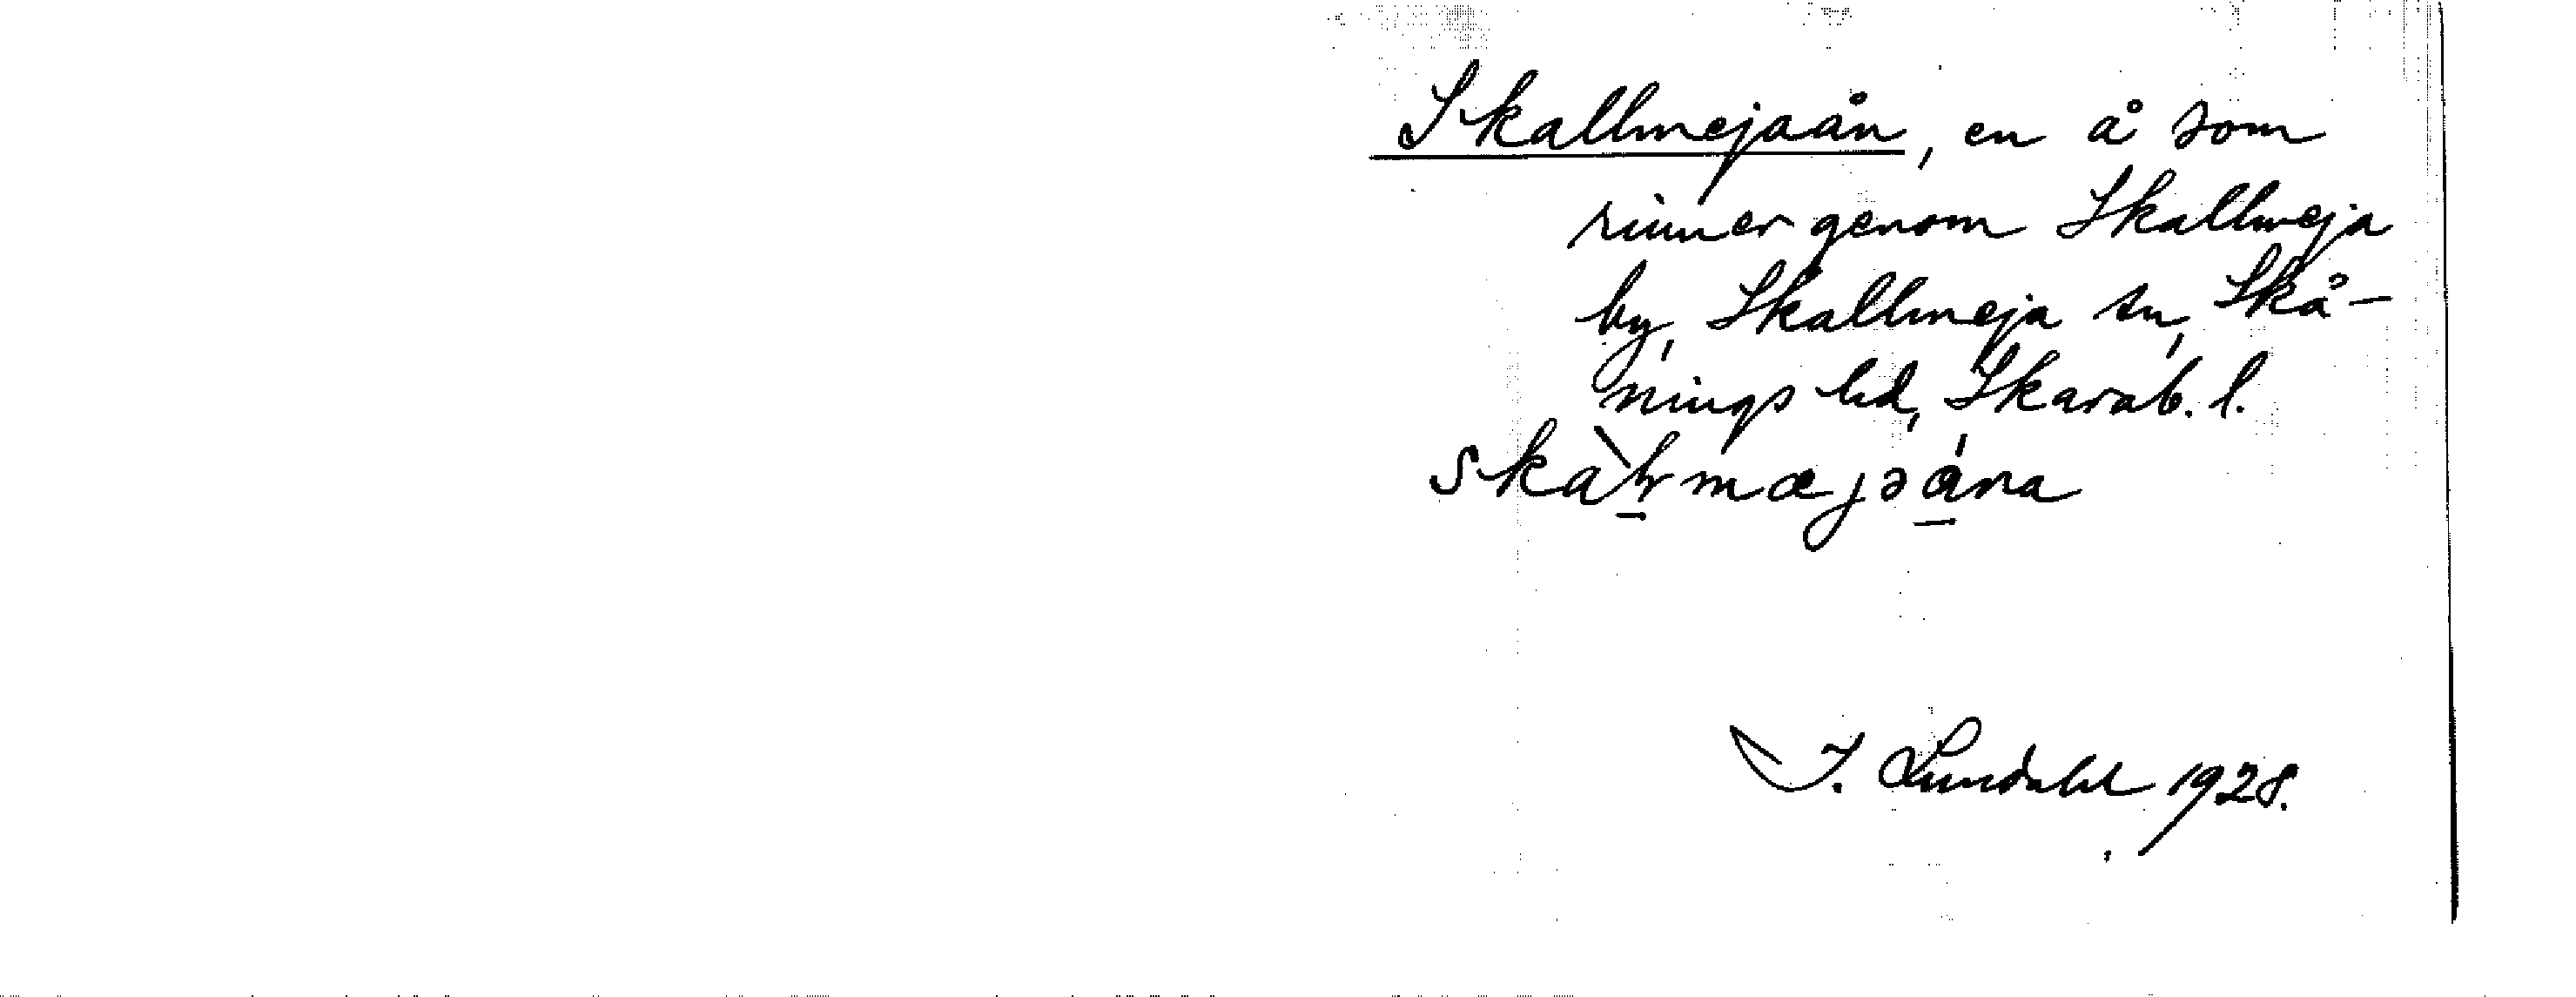 Skallmejaån, en å som
rinner genom Skallmeja
by, Skallmeja sn, Skå-
nings hd, Skarab. l.
I. Lundahl 1928.